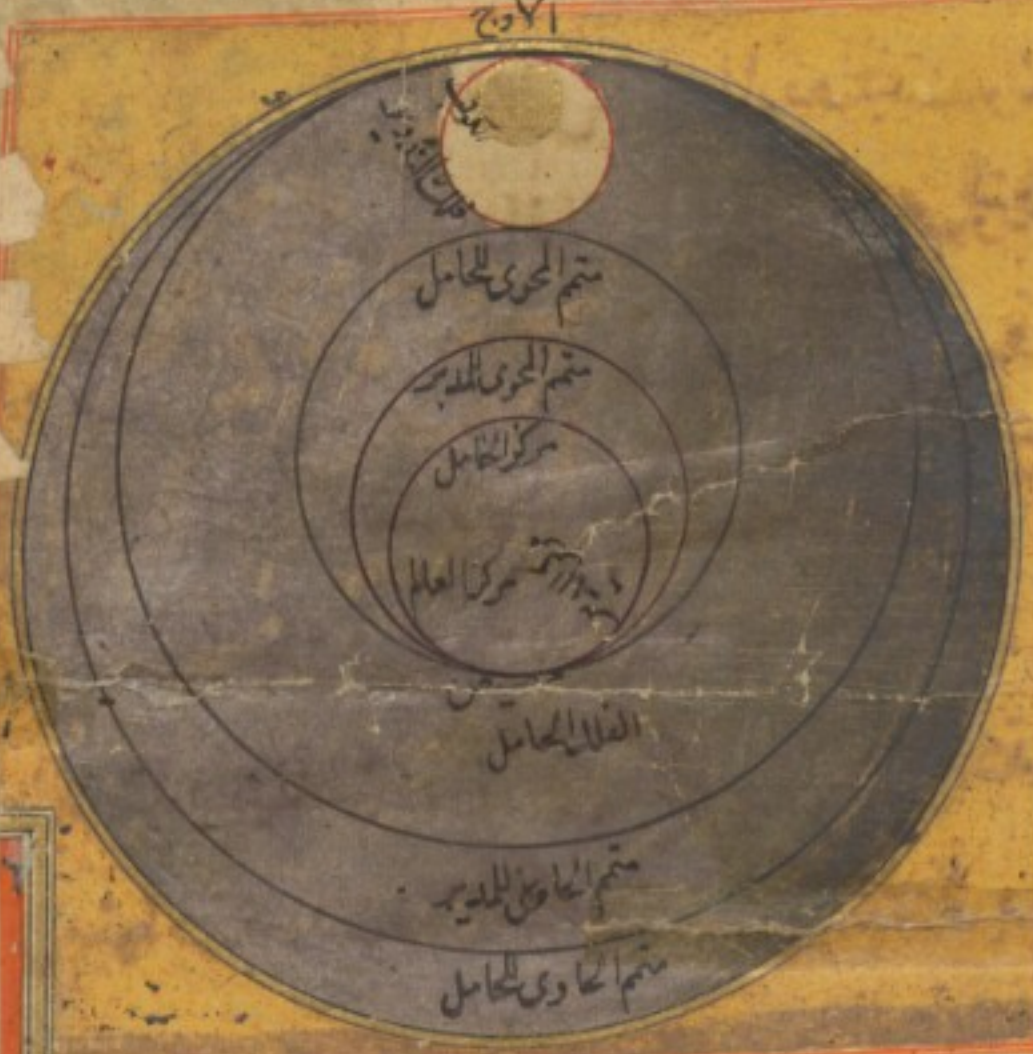 الاوج
فلك التدوير
متمم المحوى للحامل
متمم المحوى للمدير
مركز الحامل
مركز العالم
الفلك الحامل
متمم الحاوى للمدير
متمم الحاوى للحامل